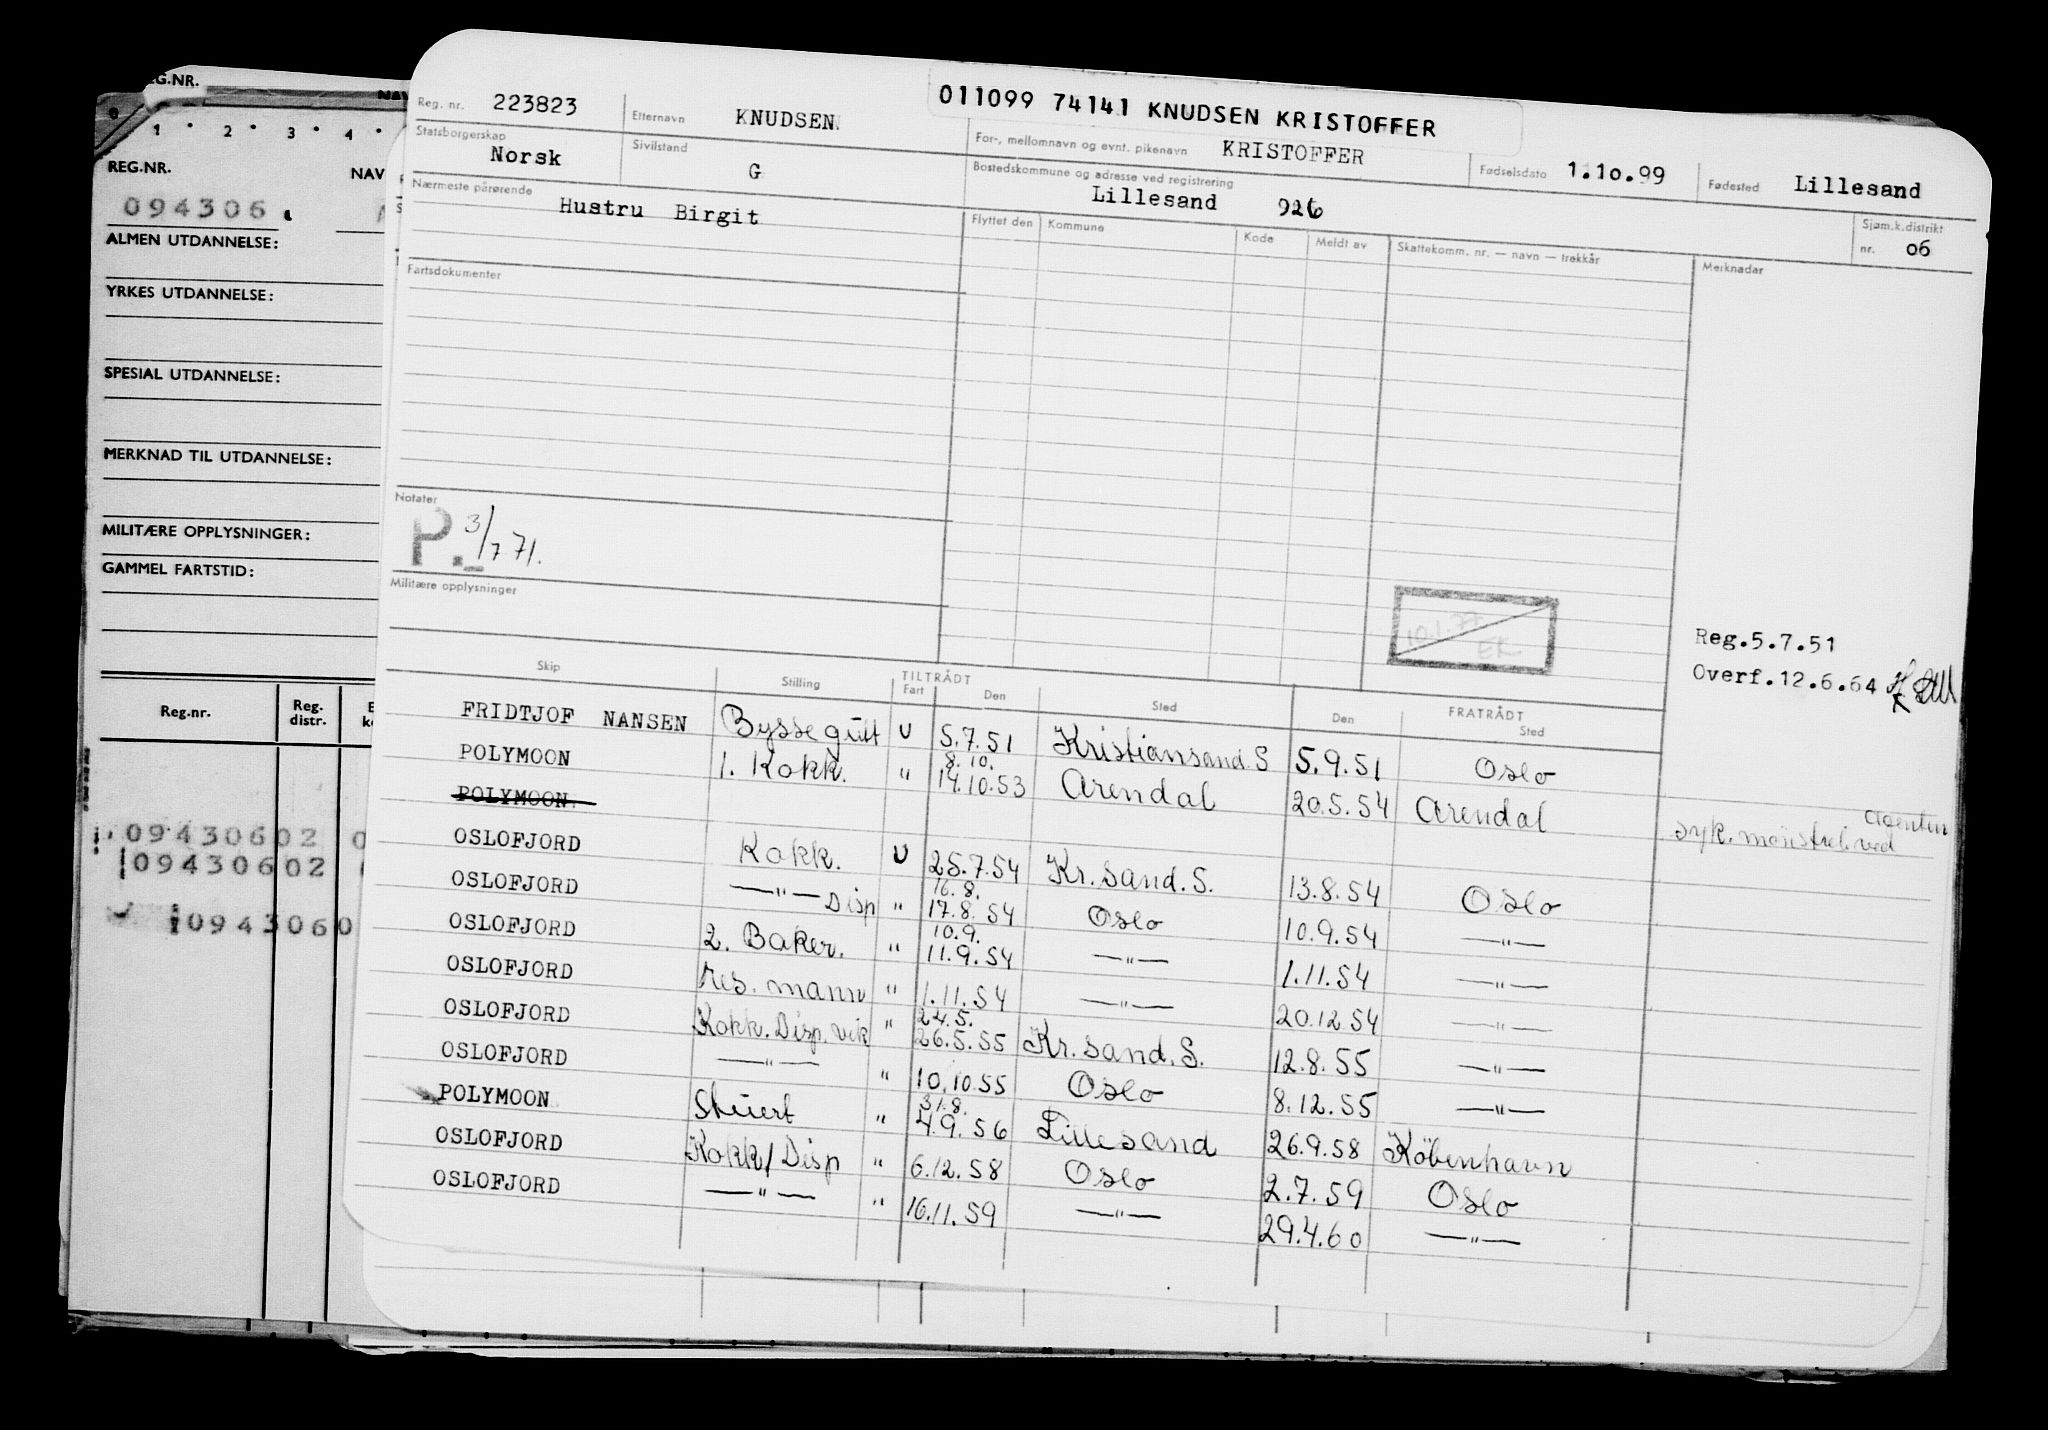 011099 74141 KNUDSEN KRISTOFFER
Reg. nr. 223823 Etternavn KNUDSEN For-, mellomnavn og evnt. pikenavn KRISTOFFER Fødselsdato 1.10.99 Fødested Lillesand
Statsborgerskap Norsk Sivilstand G Bostedskommune og adresse ved registrering Lillesand 926 Sjøm.k.distrikt nr. 06
Nærmeste pårørende Hustru Birgit
Flyttet den Kommune Kode Meldt av Skattekomm. nr. — navn — trekkår Merknader
Fartsdokumenter
Notater
P. 3/7 71.
Militære opplysninger
10.1.77 EK
Reg.5.7.51
Overf.12.6.64
Skip Stilling TILTRÅDT Fart Den Sted FRATRÅDT Den Sted
FRIDTJOF NANSEN Byssegutt U 5.7.51 Kristiansand S 5.9.51 Oslo
POLYMOON 1. Kokk. " 8.10. 14.10.53 Arendal 20.5.54 Arendal syk. mønstret ved agenten
POLYMOON
OSLOFJORD Kokk. U 25.7.54 Kr.sand.S. 13.8.54 Oslo
OSLOFJORD —"— Disp " 16.8. 17.8.54 Oslo 10.9.54 —"—
OSLOFJORD 2. Baker. " 10.9. 11.9.54 —"— 1.11.54 —"—
OSLOFJORD res. mann " 1.11.54 —"— 20.12.54 —"—
OSLOFJORD Kokk.Disp.vik " 24.5. 26.5.55 Kr.sand.S. 12.8.55 —"—
OSLOFJORD —"— " 10.10.55 Oslo 8.12.55 —"—
POLYMOON Stuert " 31.8. 4.9.56 Lillesand 26.9.58 København
OSLOFJORD Kokk/Disp " 6.12.58 Oslo 2.7.59 Oslo
OSLOFJORD —"— " 16.11.59 —"— 29.4.60 —"—
REG.NR.
1 2 3 4
REG.NR. NAV
094306
ALMEN UTDANNELSE:
YRKES UTDANNELSE:
SPESIAL UTDANNELSE:
MERKNAD TIL UTDANNELSE:
MILITÆRE OPPLYSNINGER:
GAMMEL FARTSTID:
Reg.nr. Reg. distr.
09430602
09430602
0943060